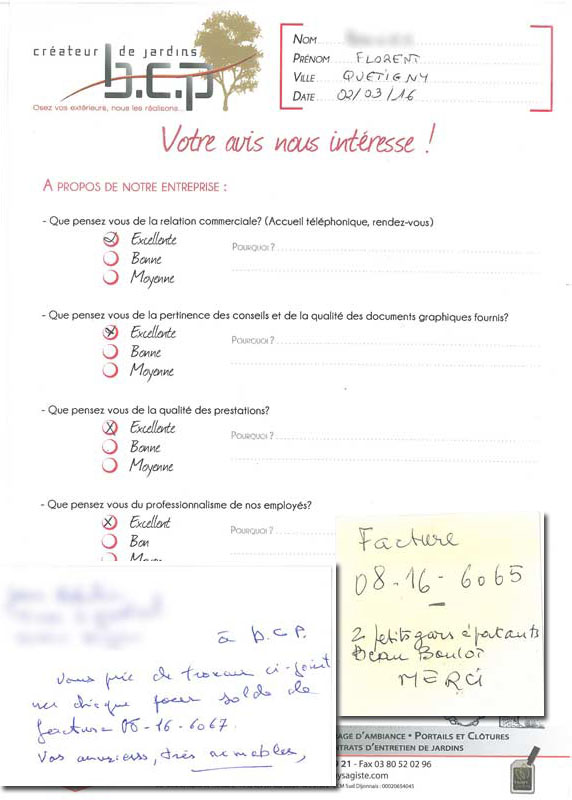 créateur de jardins
b.c.p
Osez vos extérieurs, nous les réalisons...
NOM
PRÉNOM FLORENT
VILLE QUETIGNY
DATE 02/03/16
Votre avis nous intéresse !
A PROPOS DE NOTRE ENTREPRISE :
- Que pensez vous de la relation commerciale? (Accueil téléphonique, rendez-vous)
Excellente POURQUOI ?
Bonne
Moyenne
- Que pensez vous de la pertinence des conseils et de la qualité des documents graphiques fournis?
Excellente POURQUOI ?
Bonne
Moyenne
- Que pensez vous de la qualité des prestations?
Excellente POURQUOI ?
Bonne
Moyenne
- Que pensez vous du professionnalisme de nos employés?
Excellent POURQUOI ?
Bon
Facture
08-16-6065
2 petits gars épatants
Beau Boulot
MERCI
à b.c.P.
Vous prie de trouver ci-joint
chèque pour solde de
facture 08-16-6067.
Vos ouvriers, très aimables,
AGE D'AMBIANCE • PORTAILS ET CLÔTURES
NTRATS D'ENTRETIEN DE JARDINS
21 - Fax 03 80 52 02 96
ysagiste.com
CM Sud Dijonnais : 00020654045